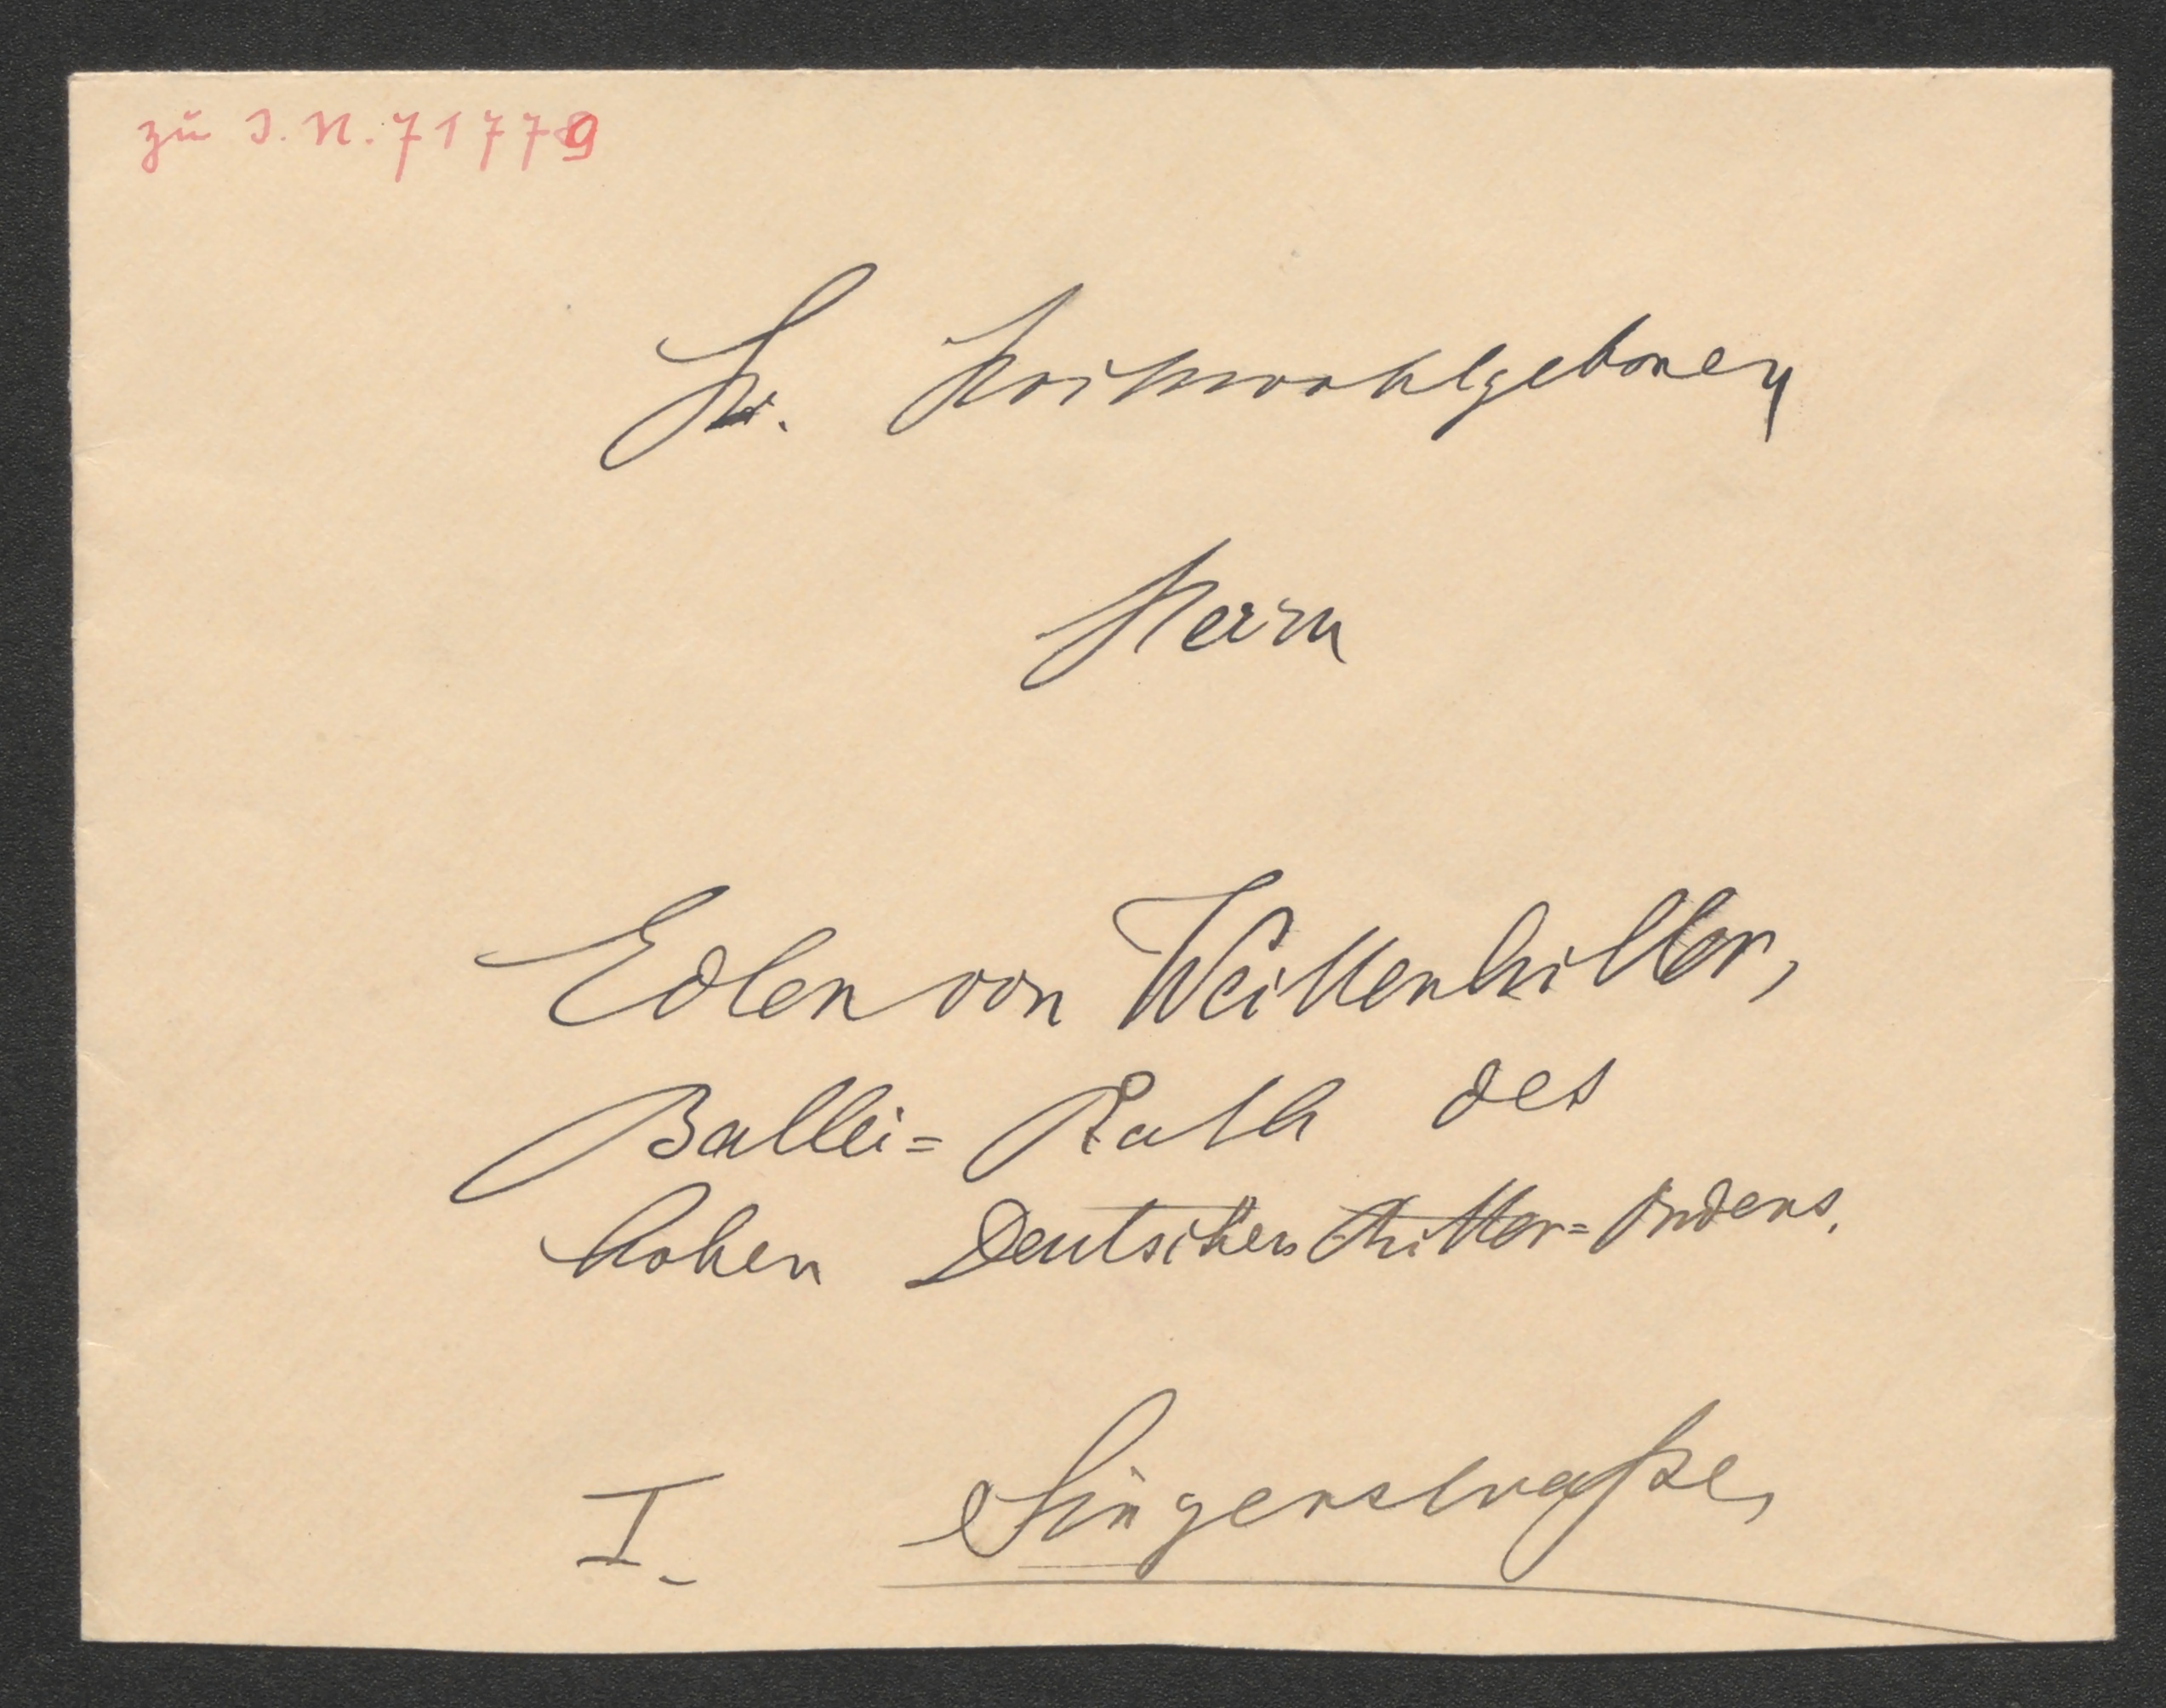 zu I. N. 71779
Sr. Hochwohlgeboren
Herrn
Edlen von Weittenhiller,
Ballei= Rath des
hohen Deutschen Ritter=Ordens.
I. Singerstraße,